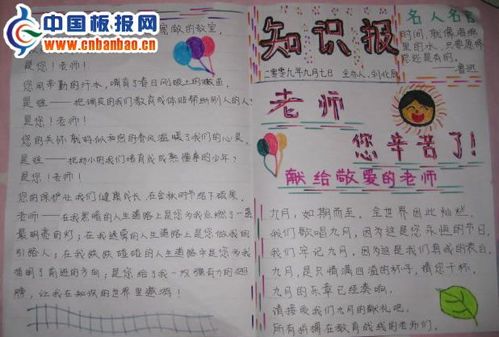 中国板报网
www.cnbanbao.cn
敬的教室
是您！老师！
是谁——把调皮的我们教育成体贴帮助别人的人？
是您！老师！
您的关怀就好似和煦的春风温暖了我们的心灵。
是谁——把幼小的我们培育成成熟懂事的少年？
是您！老师！
您的保护让我们健康成长，在金秋的节格下硕果。
老师——在我黑暗的人生道路上是您为我点燃了一盏
最明亮的灯；在我迷离的人生道路上是您做我的
引路人；在我跌跌碰碰的人生道路中是您为我
指明了前进的方向；是您给了我一双强有力的翅
膀，让我在知识的世界里遨游！
知识报
二零零九年九月七日
主办人：刘化辰
名人名言
时间，就像海绵
里的水，只要愿挤
总还是有的。
鲁迅
老师
您辛苦了！
献给敬爱的老师
九月，如期而至，全世界因此灿烂。
我们歌唱九月，因为这是您永恒的节日，
我们牢记九月，因为这是我们真诚的表白，
九月，是只情满四溢的杯子，请您干杯，
九月的乐章已经奏响。
请接受我们九月的献礼吧，
所有拼搏在教育战线的老师们。